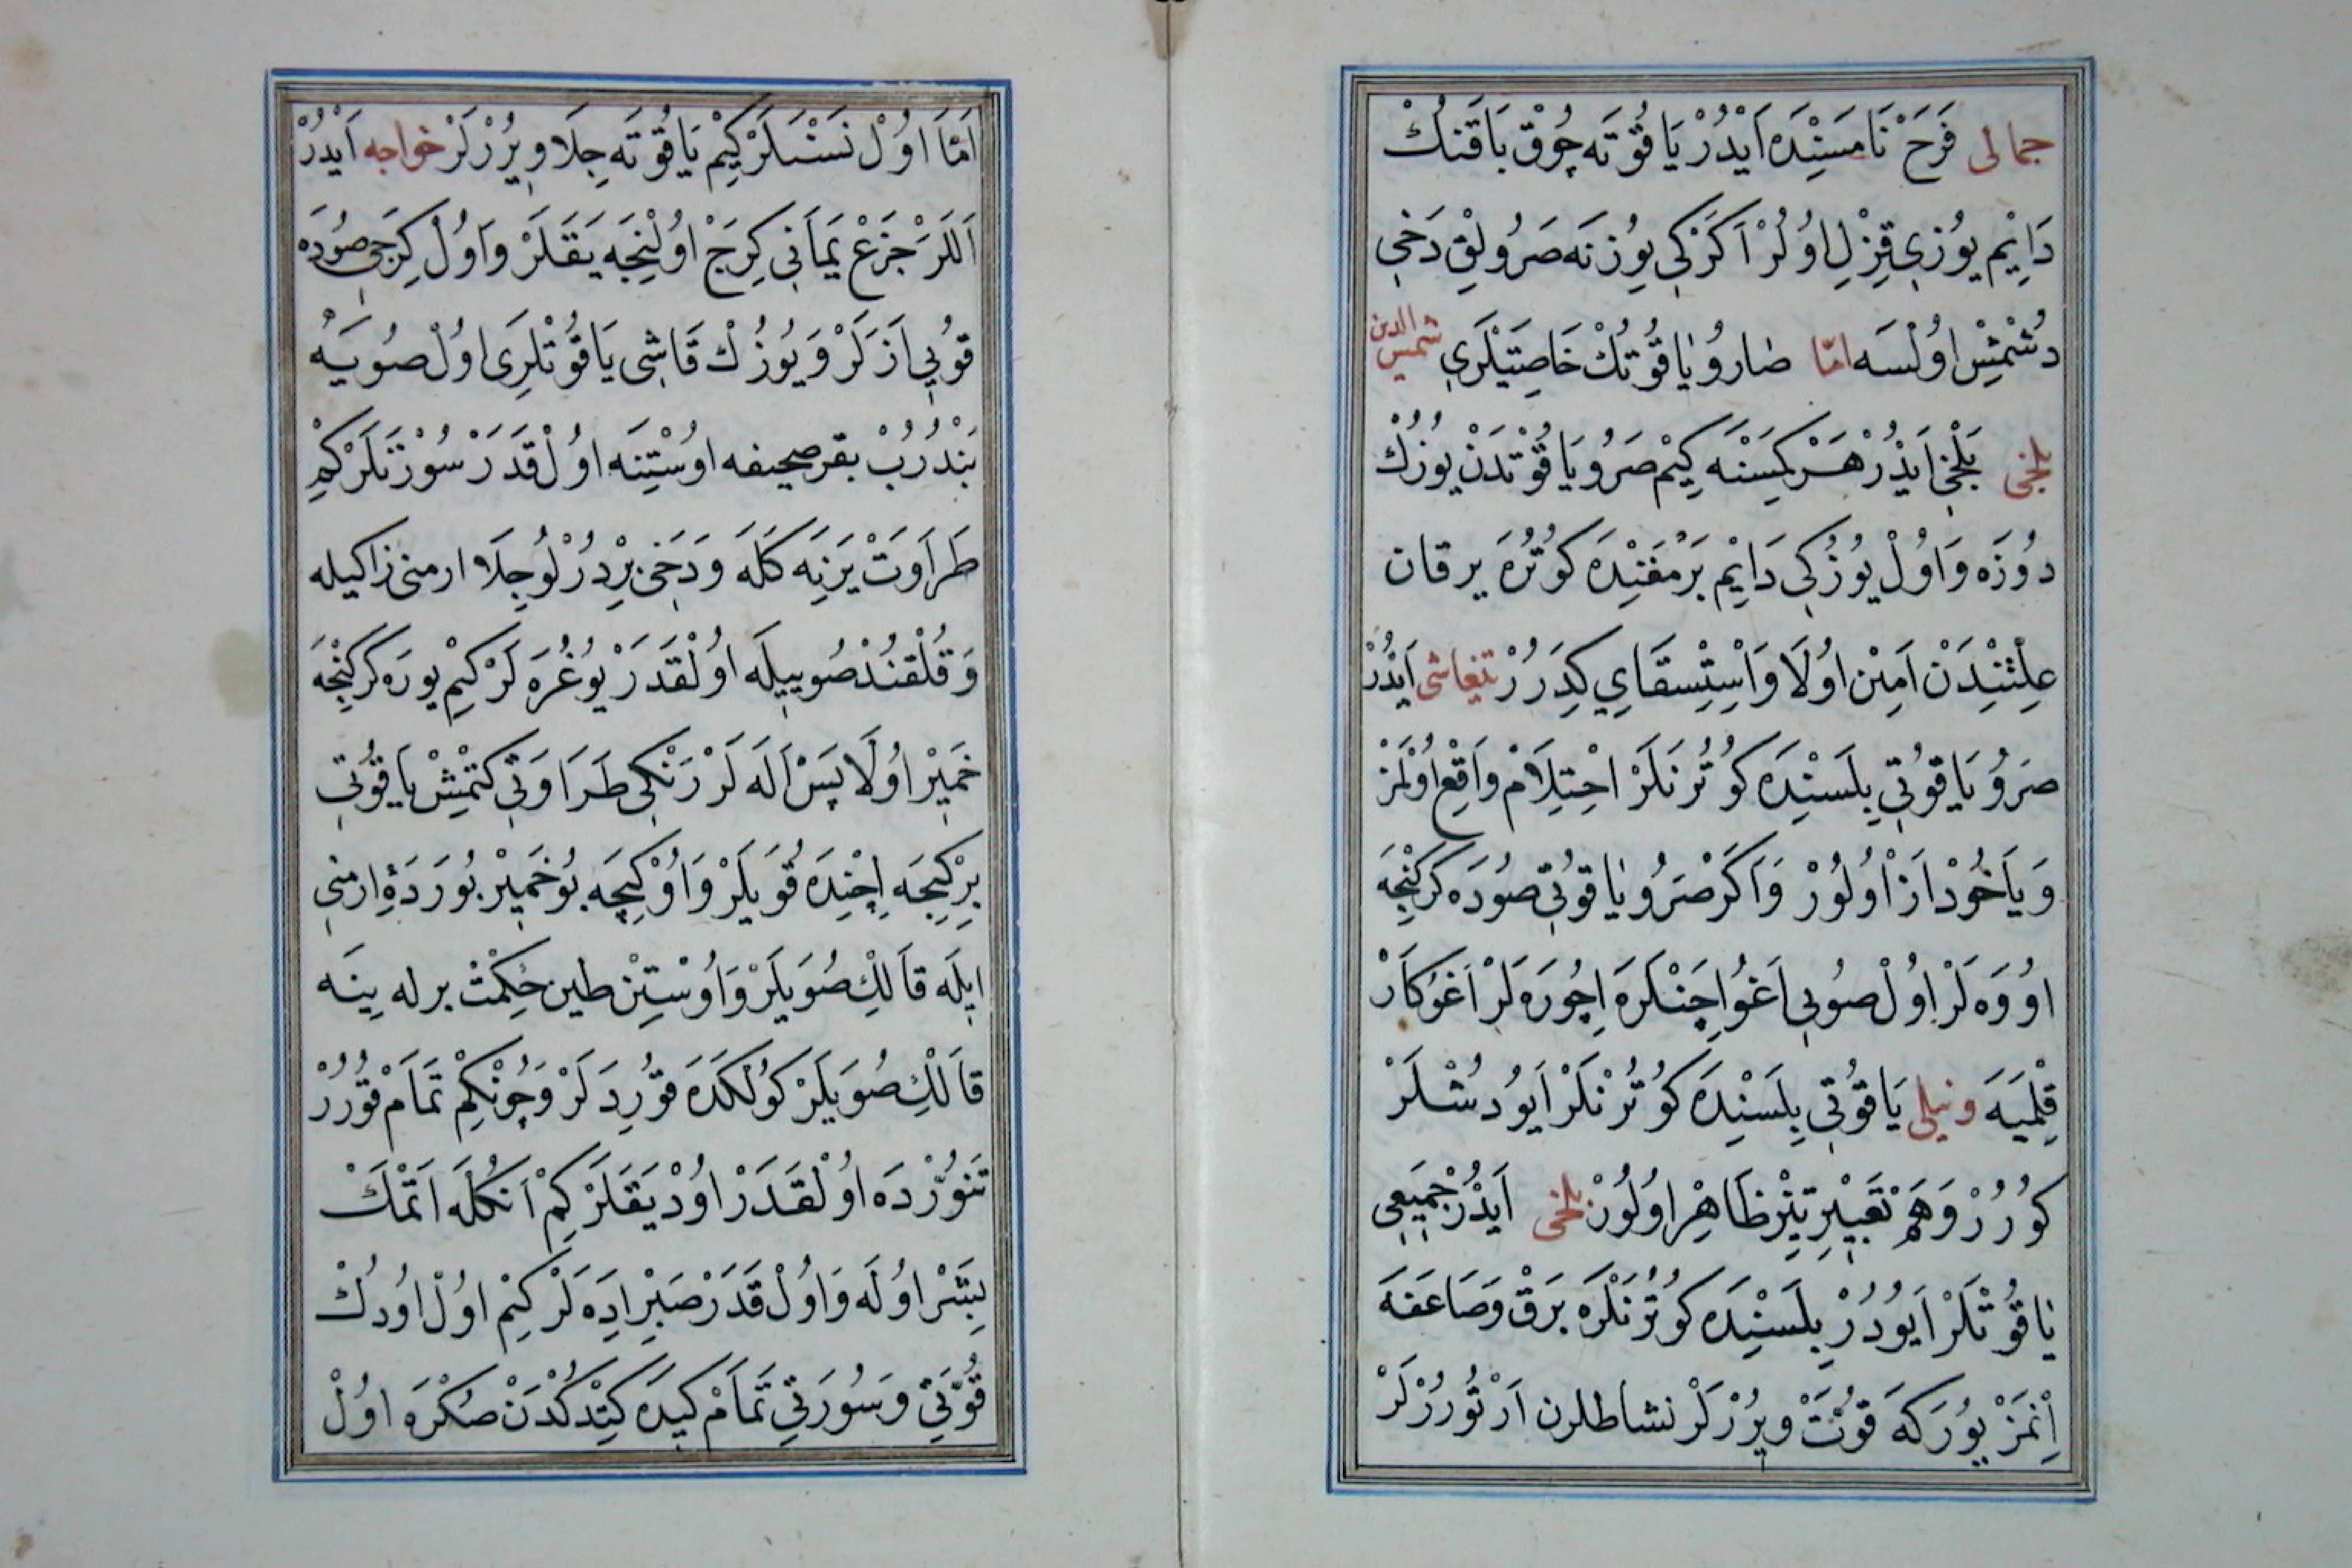 جمالی فَرَحْ نَامَسِنْدَه اَیْدُرْ یَاقُوتَه چُوقْ بَاقَنُكْ
دَایِمْ یُوزِی قِزْلِ اُولُرْ اَكَرْكِی یُوزِنَه صَرُولِقْ دَخِی
دُشْمِشْ اُولْسَه امّا صَارُو یَاقُوتُكْ خَاصِیَتْلَرِی شمس الدین
بلخی بَلْخِی اَیْدُرْ هَرْ كِسَنَه كِیمْ صَرُو یَاقُوتْدَنْ یُوزُكْ
دُوزَه وَاُولْ یُوزُكِی دَایِمْ بَرْمَغِنْدَه كُوتُرَه یرقان
عِلْتِنْدَنْ اَمِینْ اُولَا وَاِسْتِسْقَایِی كِدَرُرْ تیفاشی اَیْدُرْ
صَرُو یَاقُوتِی بِلَسِنْدَه كُوتُرَنْلَرْ اِحْتِلَامْ وَاقِعْ اُولْمَزْ
وَیَاخُودْ اَزْ اُولُورْ وَاَكَرْ صَرُو یَاقُوتِی صُودَه كَرَكِنْجَه
اُووَه لَرْ اُولْ صُویِی اَغُو اِچَنْلَرَه اِچُورَه لَرْ اَغُو كَارْ
قِلْمَیَه ونیلی یَاقُوتِی بِلَسِنْدَه كُوتُرَنْلَرْ اَیُو دُشْلَرْ
كُورُرْ وَهَمْ تَعْبِیرِ تِیزْ ظَاهِرْ اُولُورْ بلخی اَیْدُرْ جَمِیعِی
یَاقُوتْلَرْ اَیُودُرْ بِلَسِنْدَه كُوتُرَنْلَرَه بَرْقْ وَصَاعَقَه
اِنْمَزْ یُورَكَه قُوَّتْ وِیرُرْلَرْ نشاطلرن اَرْتُورُرْلَرْ
اَمَّا اُولْ نَسْنَلَرْ كِیمْ یَاقُوتَه جِلَا وِیرُرْلَرْ خواجه اَیْدُرْ
اَلَلَرْ جَزَعْ یَمَانِی كِرَجْ اُولِنْجَه یَقَلَرْ وَاُولْ كِرَجِی صُودَه
قُویِی اَزَرلَرْ وَیُوزُكْ قَاشِی یَاقُوتْلَرِی اُولْ صُویَه
بَنْدُرُبْ بقر صحیفه اُوسْتِنَه اُولْ قَدَرْ سُوزَنلَرْ كِمْ
طَرَاوَتْ یَرِنَه كَلَه وَدَخِی بِرْدُرْلُو جِلَا ارمنی زاكیله
وَقُلْقُنْدْ صُویِیلَه اُولْقَدَرْ یُوغُرَه لَرْ كِیمْ یُورَه كَرَكِنْجَه
خَمِیرْ اُولَا پَسْ اَلَه لَرْ رَنْكِی طَرَاوَتِی كِتْمِشْ یَاقُوتِی
بِرْ كِیجَه اِچِنْدَه قُویَلَرْ وَاُوْ كِیجَه بُو خَمِیرْ بُورَدَۀ ارمنی
ایلَه قَالِكْ صُوَیَلَرْ وَاُوسْتِنْ طین حِكْمَتْ برله یِینَه
قَالِكْ صُوَیَلَرْ كُولْكَدَه قُورِدَلَرْ وَچُونْكِمْ تَمَامْ قُورُرْ
تَنُورْدَه اُولْقَدَرْ اُودْ یَقَلَرْ كِمْ اَنُكْلَه اَتْمَكْ
پِشَرْ اُولَه وَاُولْ قَدَرْ صَبِرْ ایدَه لَرْ كِیمْ اُولْ اُودُكْ
قُوَّتِی وَسُورَتِی تَمَامْ كِیدَه كِتْدُكْدَنْ صُكْرَه اُولْ